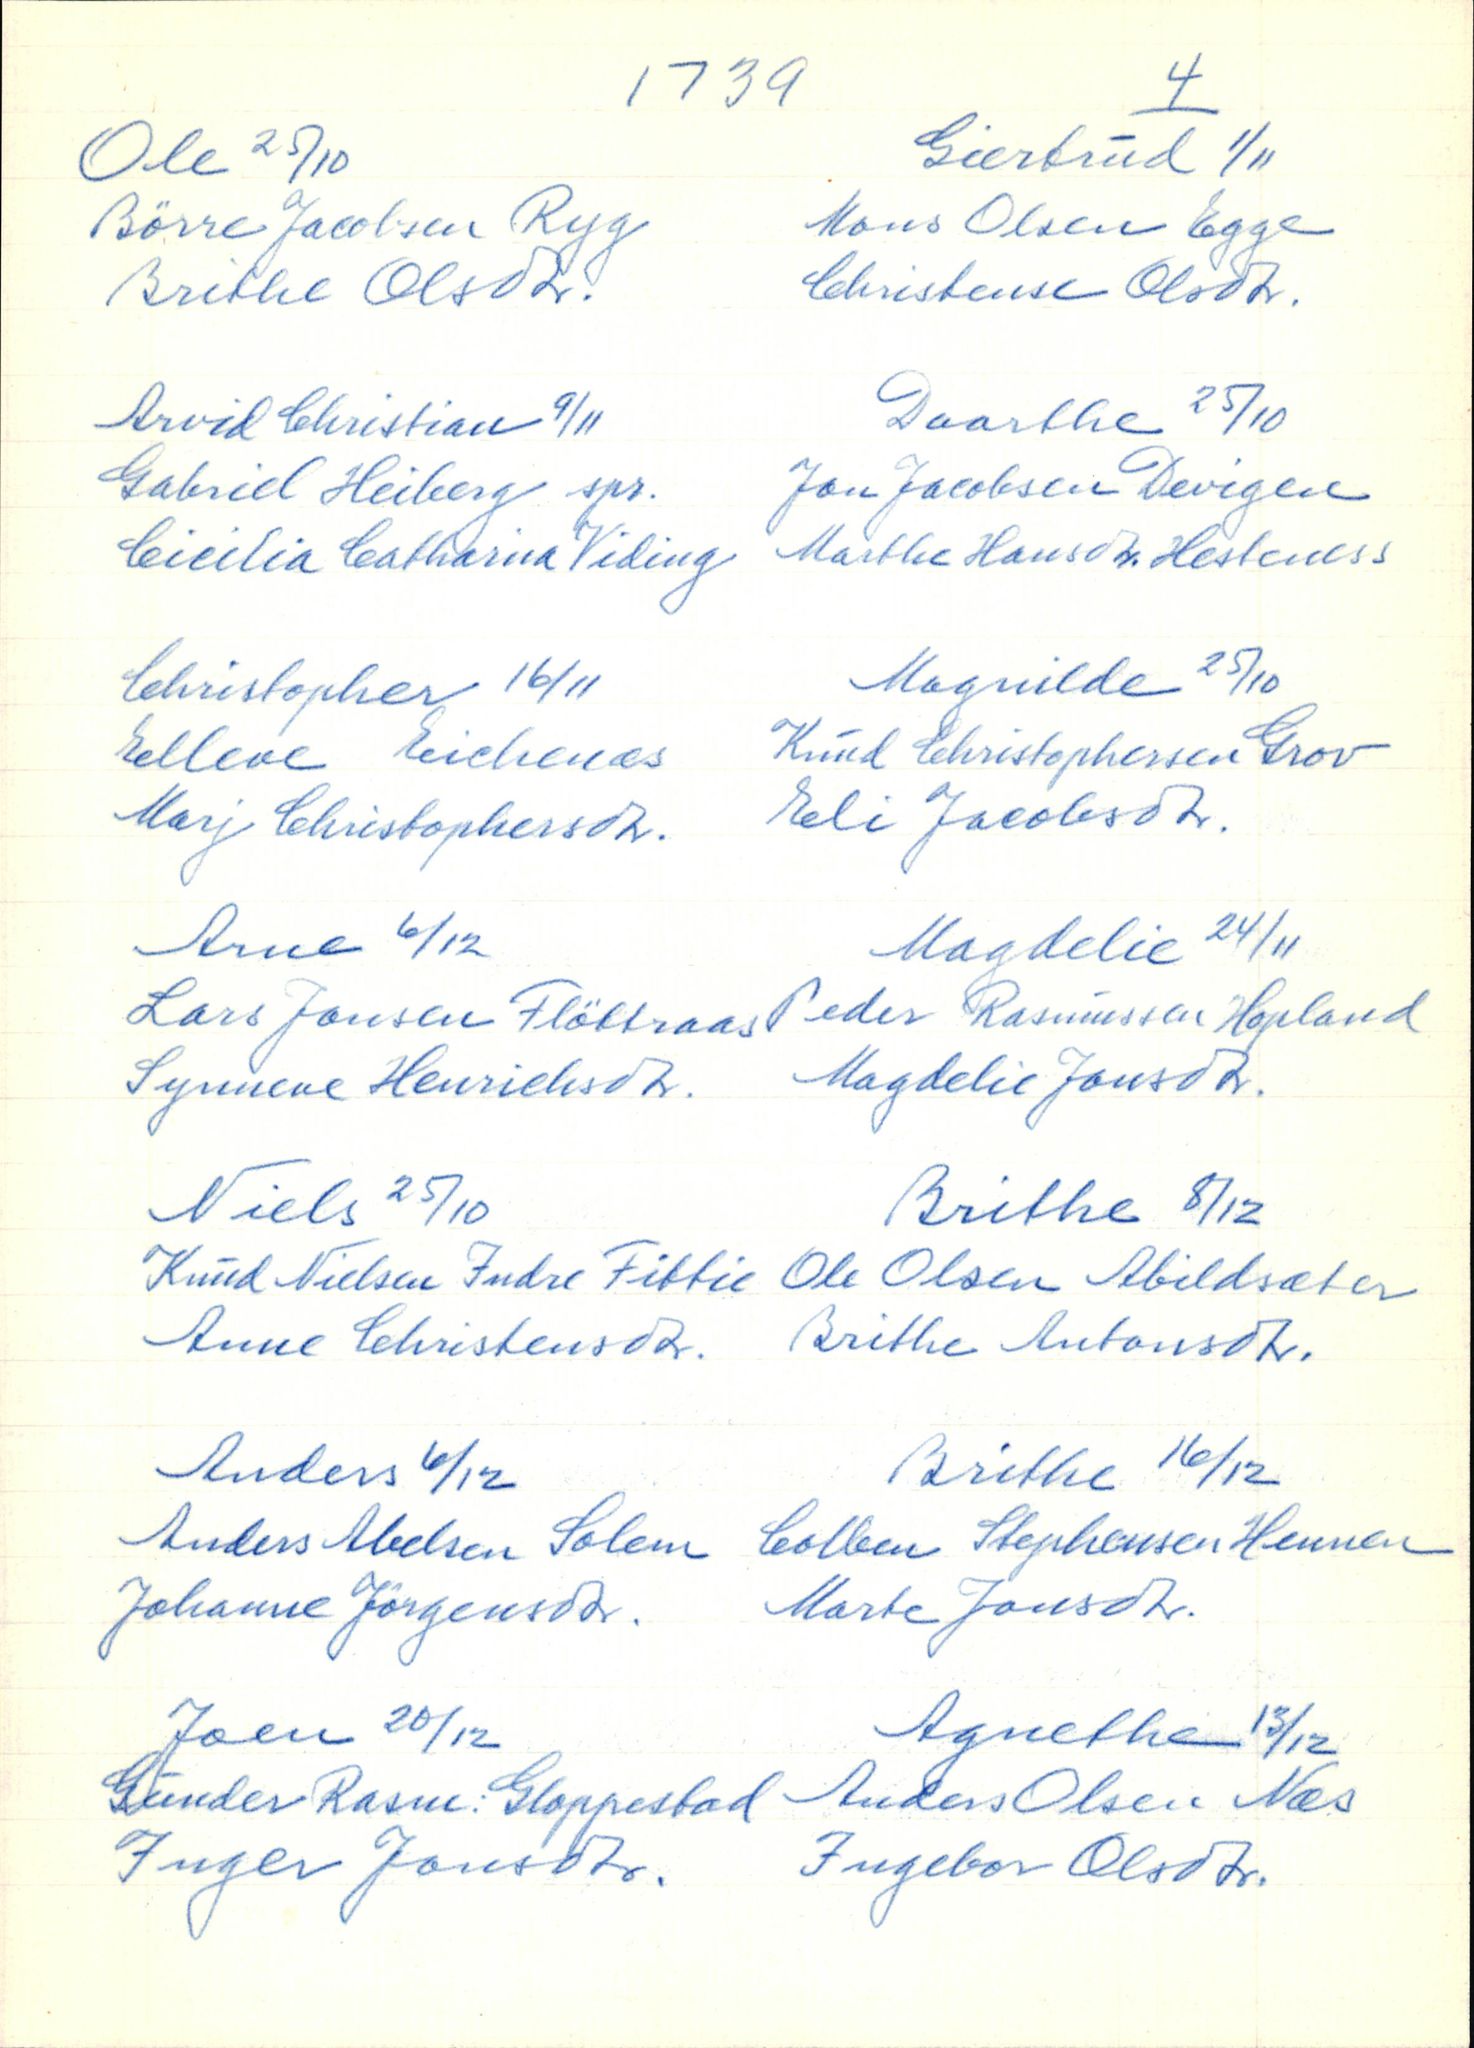 1739
4
Ole 25/10
Börre Jacobsen Ryg
Brithe Olsdtr.
Arvid Christian 9/11
Gabriel Heiberg spr.
Cicilia Catharina Viding
Christopher 16/11
Elleve Eichenæs
Marj Christophersdtr.
Arne 6/12
Lars Jonsen Flöttraas
Synneve Henrichsdtr.
Niels 25/10
Knud Nielsen Indre Fittie
Anne Christensdtr.
Anders 6/12
Anders Abelsen Solem
Johanne Jörgensdtr.
Joen 20/12
Gunder Rasm: Gloppestad
Inger Jonsdtr.
Giertrud 1/11
Mons Olsen Egge
Christense Olsdtr.
Daarthe 25/10
Jon Jacobsen Devigen
Marthe Hansdtr. Hesteness
Magnilde 25/10
Knud Christophersen Grov
Eli Jacobsdtr.
Magdelie 24/11
Peder Rasmussen Hopland
Magdelie Jonsdtr.
Brithe 8/12
Ole Olsen Abildsæter
Brithe Antonsdtr.
Brithe 16/12
Colben Stephensen Hennen
Marte Jonsdtr.
Agnethe 13/12
Anders Olsen Næs
Ingebor Olsdtr.